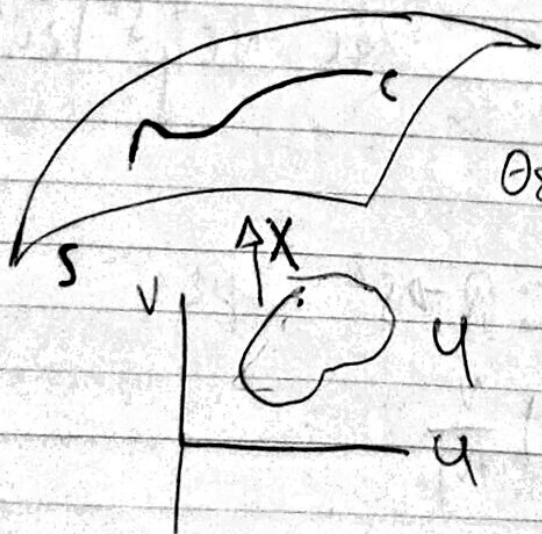 C
S
X
V
U
u